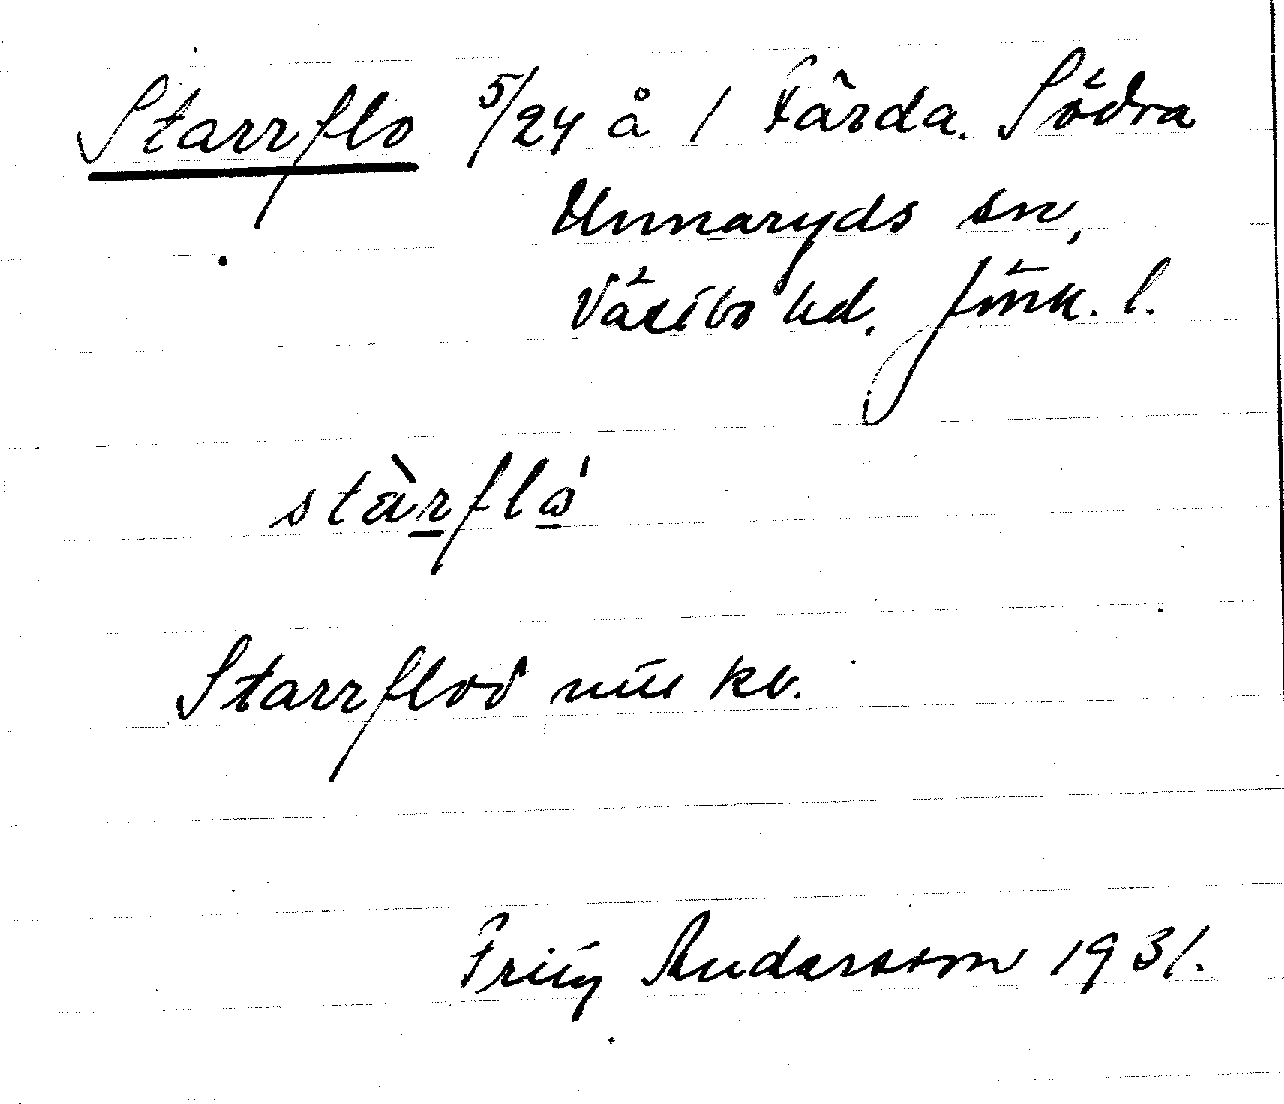 Starrflo 5/24 å 1 Färda. Södra
Unnaryds sn,
Västbo hd. Jönk. l.
stàrflå'
Starrflod nisse kb.
Fritz Andersson 1931.